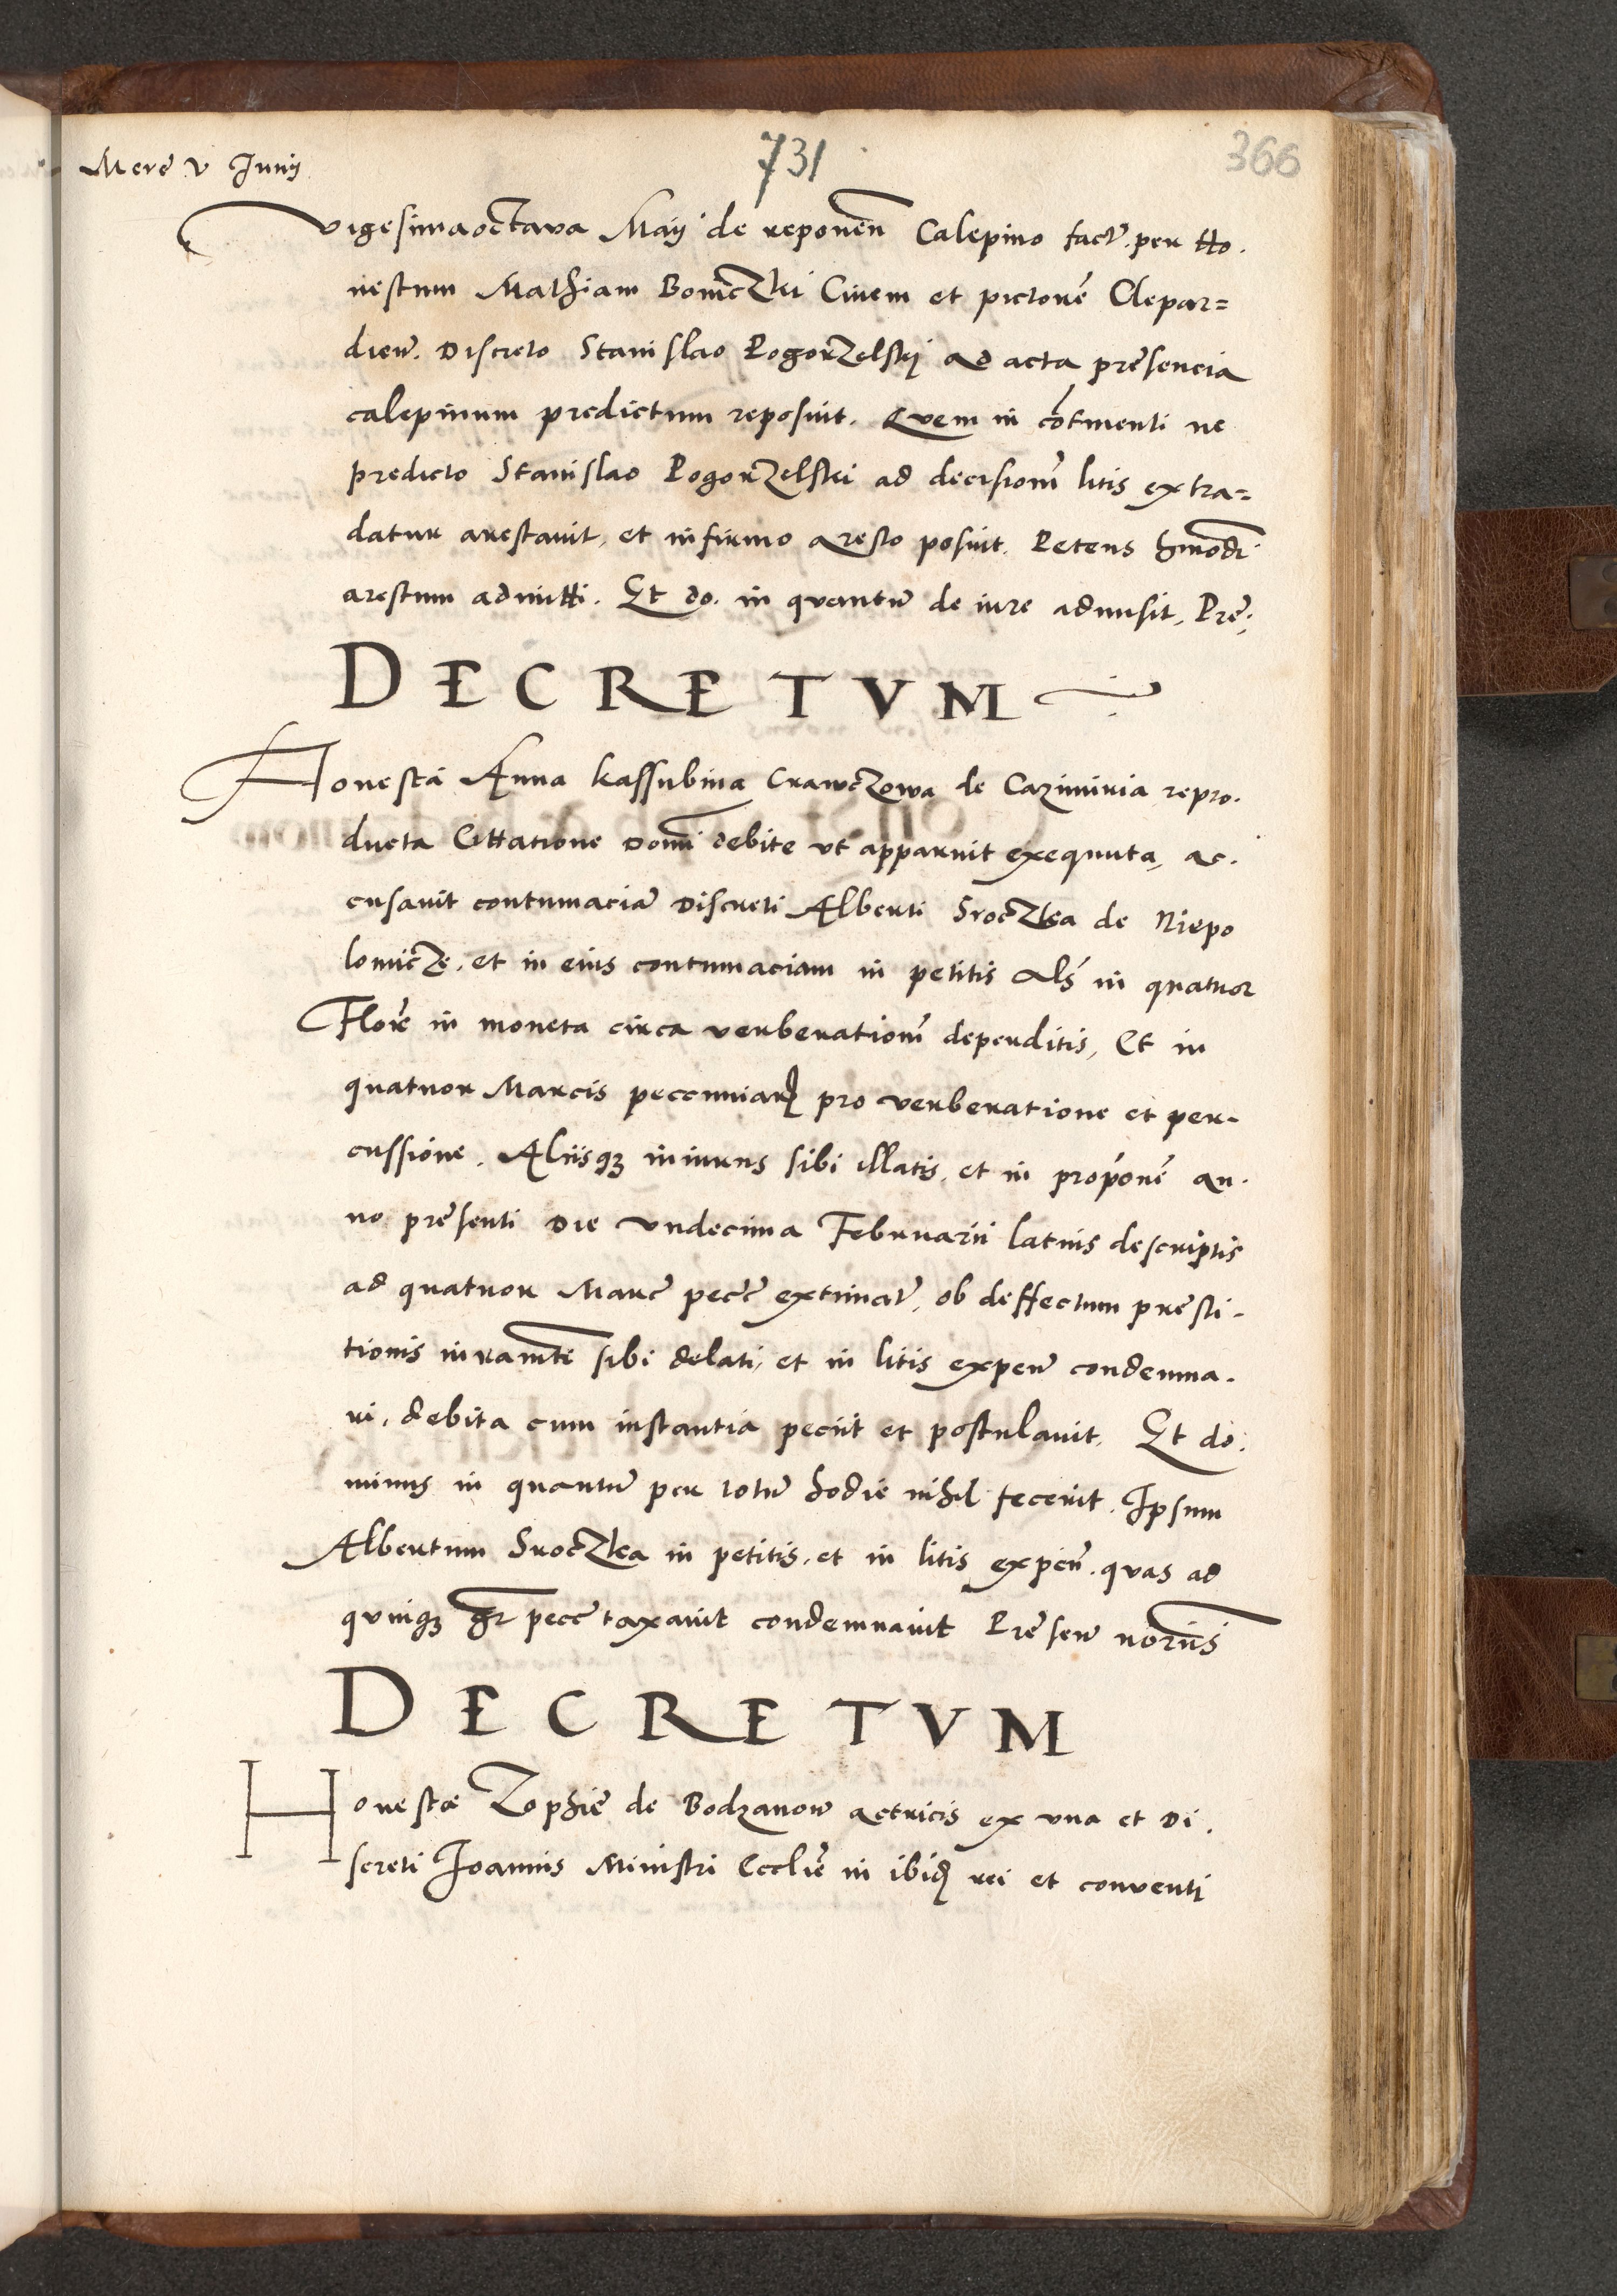 731
366
Mere v Junij
vigesimaoctava Maij de reponen Calepino fact. per Ho.
nestum Mathiam Bonieczki Civem et pictore Clepar=
dien. Discreto Stanislao Pogorzelskj ad acta presencia
calepinum predictum reposuit. Quem in continenti ne
predicto Stanislao Pogorzelski ad decisionem litis extra=
datur arestavit, et in firmo aresto posuit. Petens hmodi
arestum admitti. Et do. in quantu de iure admisit, Pre;
DECRETVM
Honesta Anna kassubina Crawczowa de Cazimiria repro.
ducta Cittatione Domi debite ut apparuit exequuta, ac.
cusavit contumacia Discreti Alberti Sroczka de Niepo
lomicze, et in eius contumaciam in petitis als in quatuor
Flore in moneta circa verberationem deperditis, Et in
quatuor Marcis pecuniar pro verberatione et per-
cussione. Aliisq iniuriis sibi illatis, et in propone an.
no presenti Die undecima Februarii latius descriptis
ad quatuor Marc pecc extimat, ob deffectum presti-
tionis iuramti sibi delati, et in litis expen condemna.
ri, debita cum instantia peciit et postulavit. Et do.
minus in quantu per totu hodie nihil fecerit. Ipsum
Albertum Sroczka in petitis, et in litis expen. quas ad
quinq gr pecc taxavit condemnavit Presen noriis
DECRETVM
Honestæ Zophie de Bodzanow actricis ex una et Di.
screti Joannis Ministri Ecclie in ibid rei et conventi